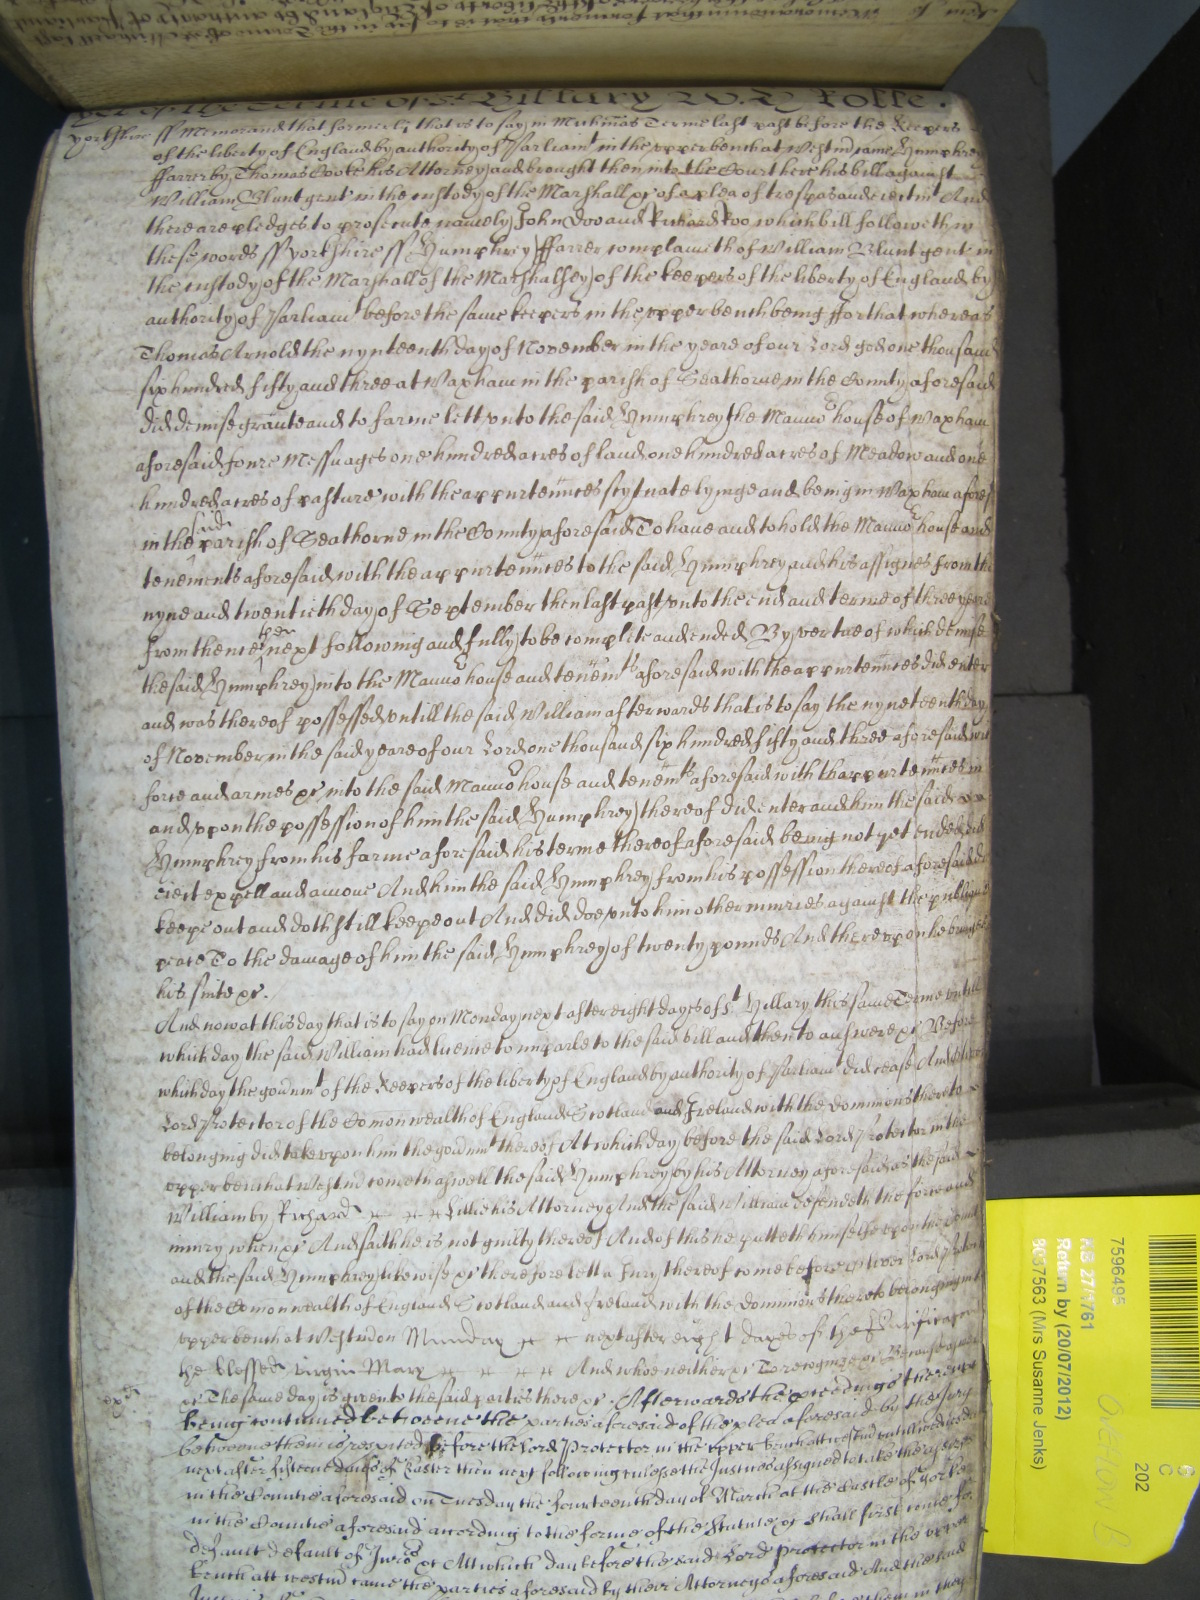 yet of the Terme of St Hillary W. R Rolle.
Yorkshire ss Memorand that formerly that is to say in Michmas Terme last past before the Keepers
of the liberty of England by authority of Parliamt in the upper bench at Westmd came Humphrey
ffarrer by Thomas Cooke his Attorney and brought then into the Court here his bill against
William Blunt gent in the custody of the Marshall &c of a plea of trespas and eiectmt And
there are pledges to prosecute namely John Doo and Richard Roo which bill followeth in
these words ss Yorkshire ss Humphrey ffarrer complaineth of William Blunt gent in
the custody of the Marshall of the Marshalsey of the keepers of the liberty of England by
authority of Parliamt before the same keepers in the upper bench being ffor that whereas
Thomas Arnold the nynteenth day of November in the yeare of our Lord god one thousand
six hundred fifty and three at Waxham in the parish of Seathorne in the County aforesaid
did demise graunte and to farme lett unto the said Humphrey the Mannor house of Waxham
aforesaid foure Messuages one hundred acres of land one hundred acres of Meadow and one
hundred acres of pasture with the appurtennces scytuate lyinge and being in Waxham afores
said
in the parish of Seathorne in the County aforesaid To have and to hold the Mannor house and
tenements aforesaid with the appurtennces to the said Humphrey and his assignes from the
nyne and twentieth day of September then last past unto the end and terme of three yeares
from thence then next following and fully to be complete and ended By vertue of which demise
the said Humphrey into the Mannor house and tenemts aforesaid with the appurtennces did enter
and was thereof possessed untill the said William afterwards that is to say the nyneteenth day
of November in the said yeare of our Lord one thousand six hundred fifty and three aforesaid with
force and armes &c into the said Mannor house and tenemts aforesaid with thappurtennces in
and upon the possession of him the said Humphrey thereof did enter and him the said
Humphrey from his farme aforesaid his terme thereof aforesaid being not yet ended did
eiect expell and amove And him the said Humphrey from his possession thereof aforesaid did
keepe out and doth still keepe out And did doe unto him other iniuries against the publique
peace To the damage of him the said Humphrey of twenty pounds And thereupon he brings
his suite &c.
And now at this day that is to say on Monday next after eight dayes of St Hillary this same Terme untill
which day the said William had licence to imparle to the said bill and then to answere &c Before
which day the govmt of the Keepers of the liberty of England by authority of Parliamt did cease And
Lord Protector of the Comonwealth of England Scotland and Ireland with the dominions thereto
belonging did take upon him the govmt thereof At which day before the said Lord Protector in the
upper bench at Westmd cometh aswell the said Humphrey by his Attorney aforesaid as the said
William by Richard Lillie his Attorney And the said William defendeth the force and
iniury when &c And saith he is not guilty thereof And of this he putteth himselfe upon the
and the said Humphrey likewise &c therefore lett a Jury thereof come before Oliver Lord Protector
of the Comonwealth of England Scotland and Ireland with the dominions thereto belonging in the
upper bench at Westmd on Munday next after eight dayes of the Purificacon
the blessed virgin Mary And whoe neither &c To recognize &c Because aswell
&c The same day is given to the said parties there &c. Afterwards the proceedings thereof
being continued betweene the parties aforesaid of the plea aforesaid by the Jury
betweene them is respited before the Lord Protector in the upper bench att westmd untill wednesday
next after fifteene dayes of Easter then next following unlesse the Justices assigned to take the assizes
in the Countie aforesaid on Tuesday the fourteenth day of March at the Castle of Yorke
in the Countie aforesaid according to the forme of the Statute &c shall first come for
default default of Jurors &c Att which day before the said Lord Protector in the upper
bench att westmd came the parties aforesaid by their Attorneys aforesaid And the said
7596495
ASS 27/1761
Return by (20/07/2012)
8057563 (Mrs Susanne Jenks)
C
202
OVERTON B